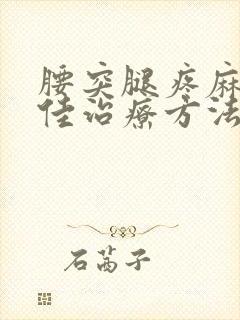 腰突腿疼麻
佳治疗方法
石茜子